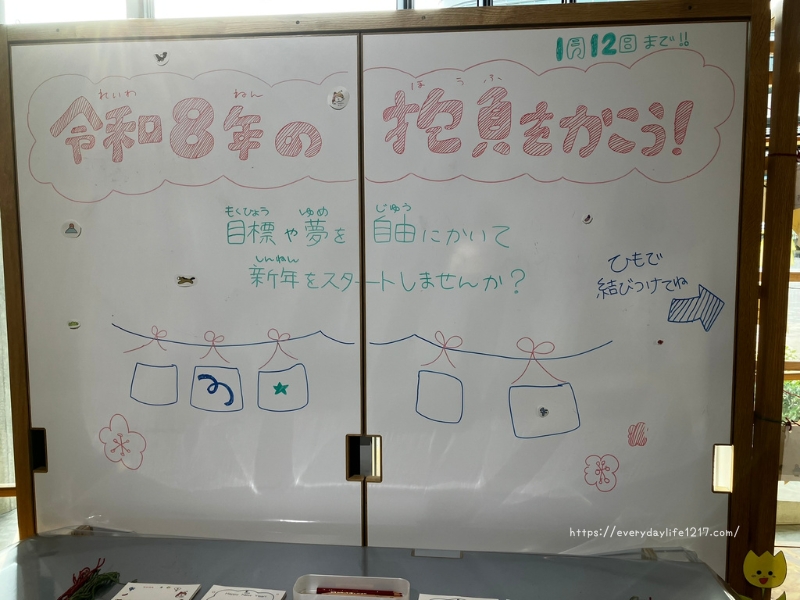 1月12日まで!!
れいわ ねん ほうふ
令和8年の抱負をかこう!
もくひょう ゆめ じゆう
目標や夢を自由にかいて
しんねん
新年をスタートしませんか?
ひもで
結びつけてね
https://everydaylife1217.com/